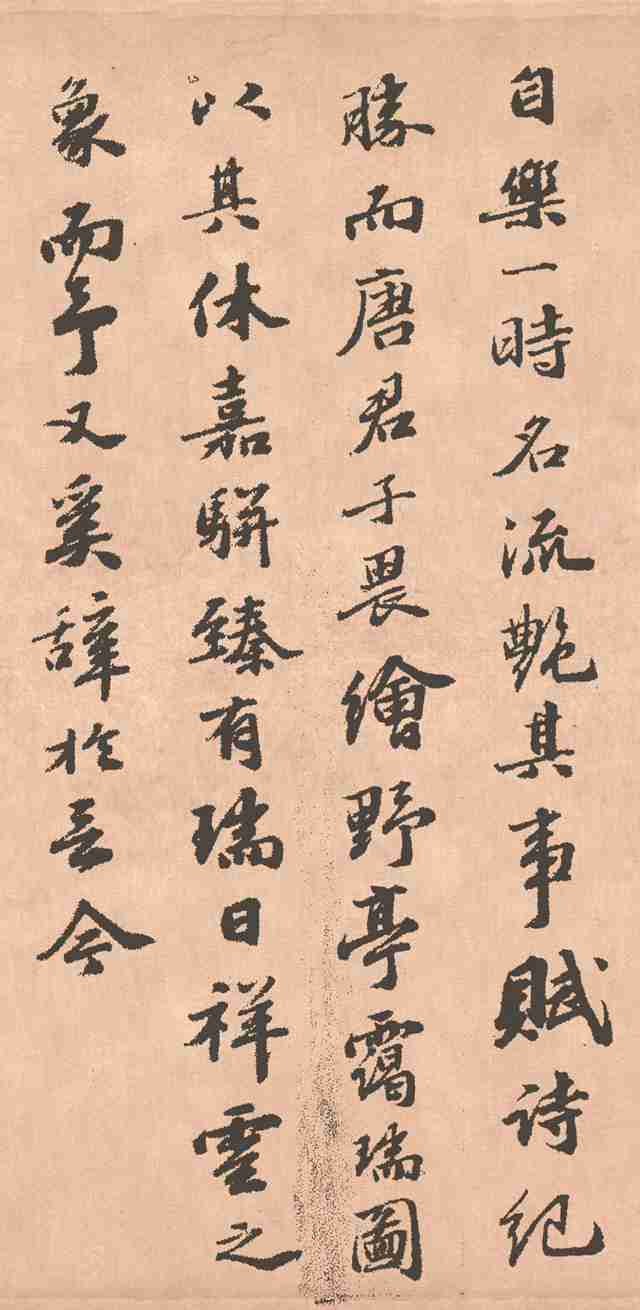 自樂一時名流艷其事賦诗纪
勝而唐君子畏繪野亭靄瑞圖
以其休嘉駢臻有瑞日祥雲之
象而予又奚辭於言今